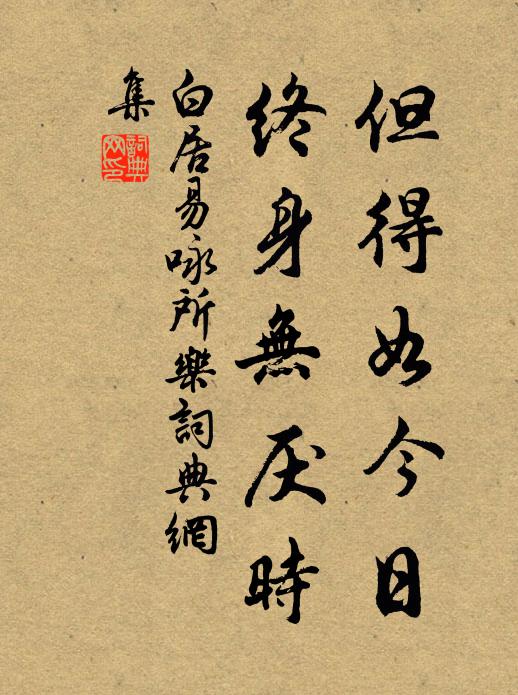 但得如今日
終身無厌時
白居易咏所樂詞典網
集
詞典
网印